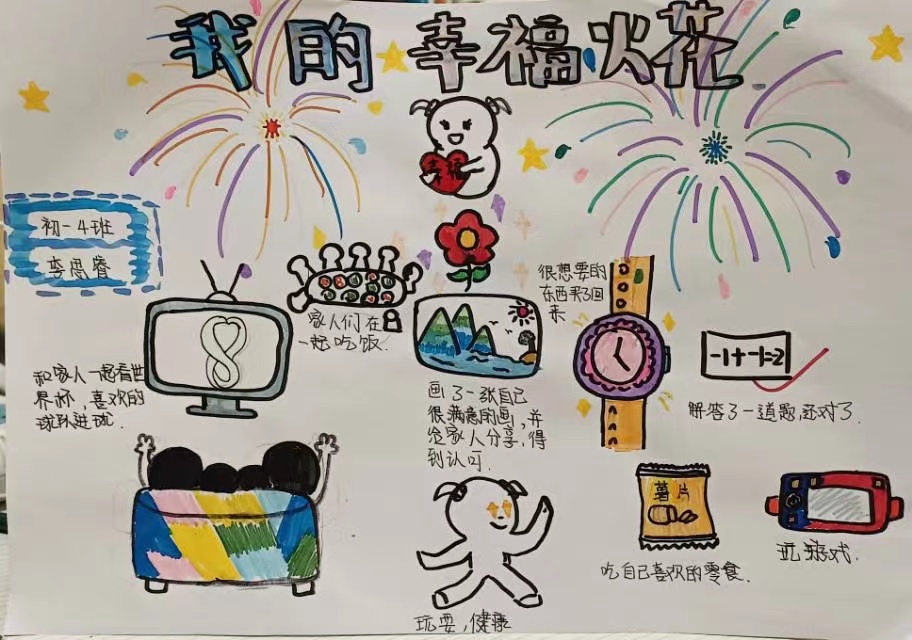 我的幸福火花
幸福
初一4班
李思睿
家人们在
一起吃饭.
很想要的
东西买了回
来
-1+-1=2
解答了一道题,还对了.
和家人一起看世
界杯,喜欢的
球队进球.
画了一张自己
很满意的画,并
给家人分享,得
到认可.
薯片
吃自己喜欢的零食.
玩游戏.
玩耍,健康